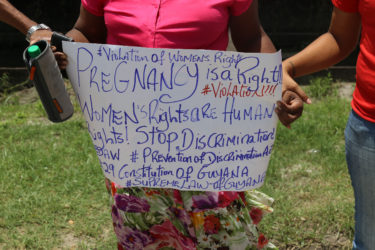 #Violation of Women's Rights
PREGNANCY is a Right!
#VIOLATION!!!
Women's Rights are Human
Rights! Stop Discrimination
LAW # Prevention of Discrimination Act
Constitution of Guyana
#Supreme Law of Guyana